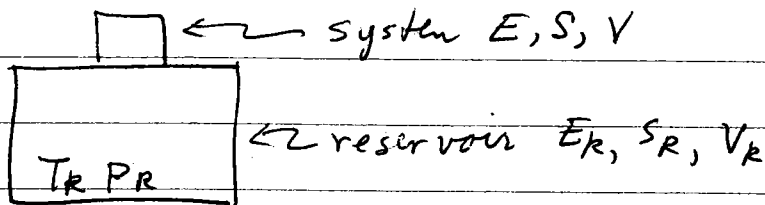 system E, S, V
reservoir E_R, S_R, V_R
T_R P_R